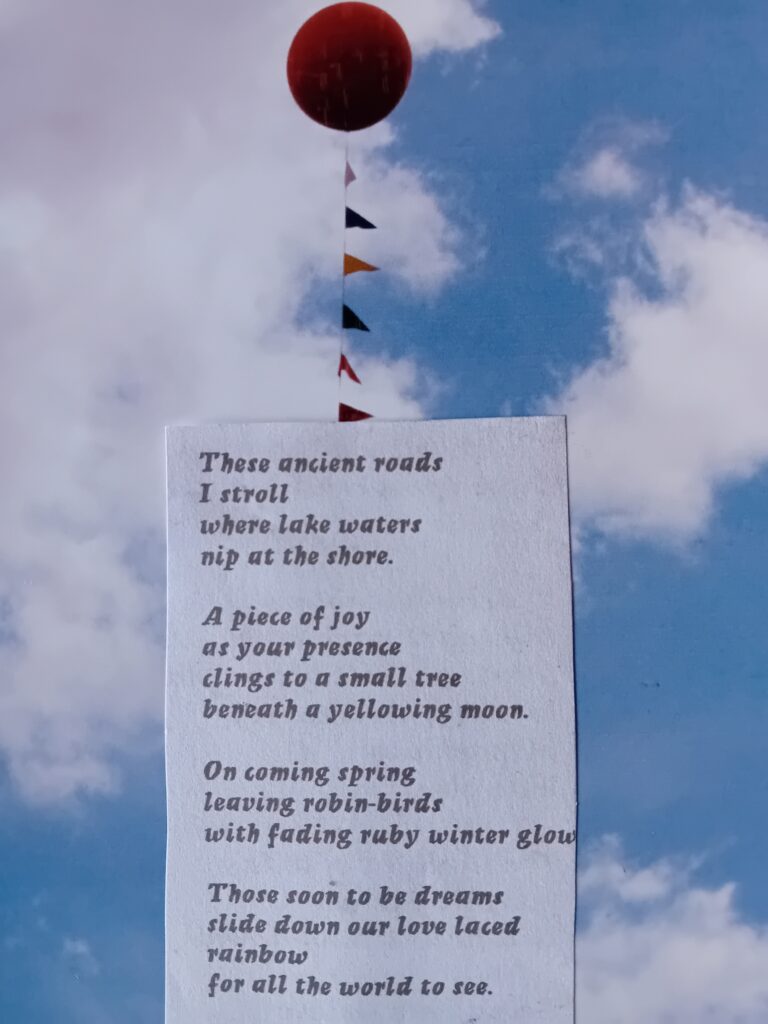 These ancient roads
I stroll
where lake waters
nip at the shore.

A piece of joy
as your presence
clings to a small tree
beneath a yellowing moon.

On coming spring
leaving robin-birds
with fading ruby winter glow

Those soon to be dreams
slide down our love laced
rainbow
for all the world to see.